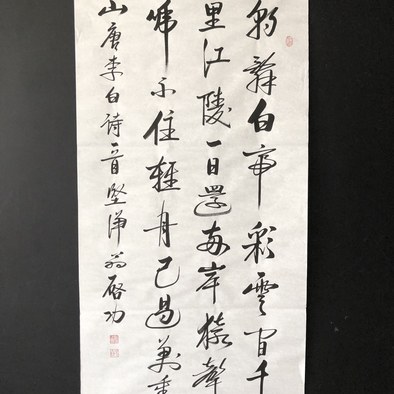 朝辭白帝彩雲間千
里江陵一日還兩岸猿聲
啼不住輕舟已過萬重
山唐李白詩一首堅淨翁啓功